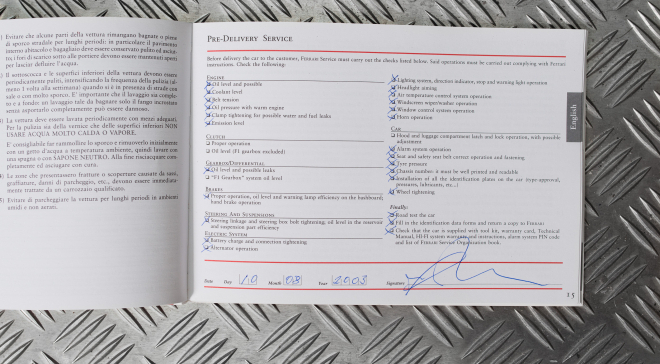 Evitare che alcune parti della vettura rimangano bagnate o piene
di sporco stradale per lunghi periodi: in particolare il pavimento
interno abitacolo e bagagliaio deve essere conservato pulito ed asciut-
to; i fori di scarico sotto alle portiere devono essere mantenuti aperti
per lasciar defluire l'acqua.
Il sottoscocca e le superfici inferiori della vettura devono essere
periodicamente puliti, intensificando la frequenza della pulizia (al-
meno 1 volta alla settimana) quando si è in presenza di strade con
sale o con molto sporco. E' importante che il lavaggio sia comple-
to e a fondo: un lavaggio tale da bagnare solo il fango incrostato
senza asportarlo completamente può essere dannoso.
La vettura deve essere lavata periodicamente con mezzi adeguati.
Per la pulizia sia della vernice che delle superfici inferiori NON
USARE ACQUA MOLTO CALDA O VAPORE.
E' consigliabile far rammollire lo sporco e rimuoverlo inizialmente
con un getto d'acqua a temperatura ambiente, quindi lavare con
una spugna o con SAPONE NEUTRO. Alla fine risciacquare com-
pletamente ed asciugare con cura.
Le zone che presentassero fratture o scoperture causate da sassi,
graffiature, danni di parcheggio, etc., devono essere immediata-
mente trattate da un carrozzaio qualificato.
Evitare di parcheggiare la vettura per lunghi periodi in ambienti
umidi e non aerati.
PRE-DELIVERY SERVICE
Before delivery the car to the customer, FERRARI Service must carry out the checks listed below. Said operations must be carried out complying with Ferrari
instructions. Check the following:
ENGINE
Oil level and possible
Coolant level
Belt tension
Oil pressure with warm engine
Clamp tightening for possible water and fuel leaks
Emission control
CLUTCH
Proper operation
Oil level (F1 gearbox excluded)
GEARBOX/DIFFERENTIAL
Oil level and possible leaks
"F1 Gearbox" system oil level
BRAKES
Proper operation, oil level and warning lamp efficiency on the dashboard;
hand brake operation
STEERING AND SUSPENSIONS
Steering linkage and steering box bolt tightening; oil level in the reservoir
and suspension part efficiency
ELECTRIC SYSTEM
Battery charge and connection tightening
Alternator operation
Lighting system, direction indicator, stop and warning light operation
Headlight aiming
Air temperature control system operation
Windscreen wiper/washer operation
Window control system operation
Horn operation
CAR
Hood and luggage compartment hatch and lock operation, with possible
adjustment
Alarm system operation
Seat and safety seat belt correct operation and fastening
Tyre pressure
Chassis number: it must be well printed and readable
Installation of all the identification plates on the car (type-approval,
pressures, lubricants, etc...)
Wheel tightening
Finally:
Road test the car
Fill in the identification data forms and return a copy to FERRARI
Check that the car is supplied with tool kit, warranty card, Technical
Manual, HI-FI system warranty and instructions, alarm system PIN code
and list of FERRARI Service Organization book.
English
Date Day 19 Month 08 Year 2003 Signature
15